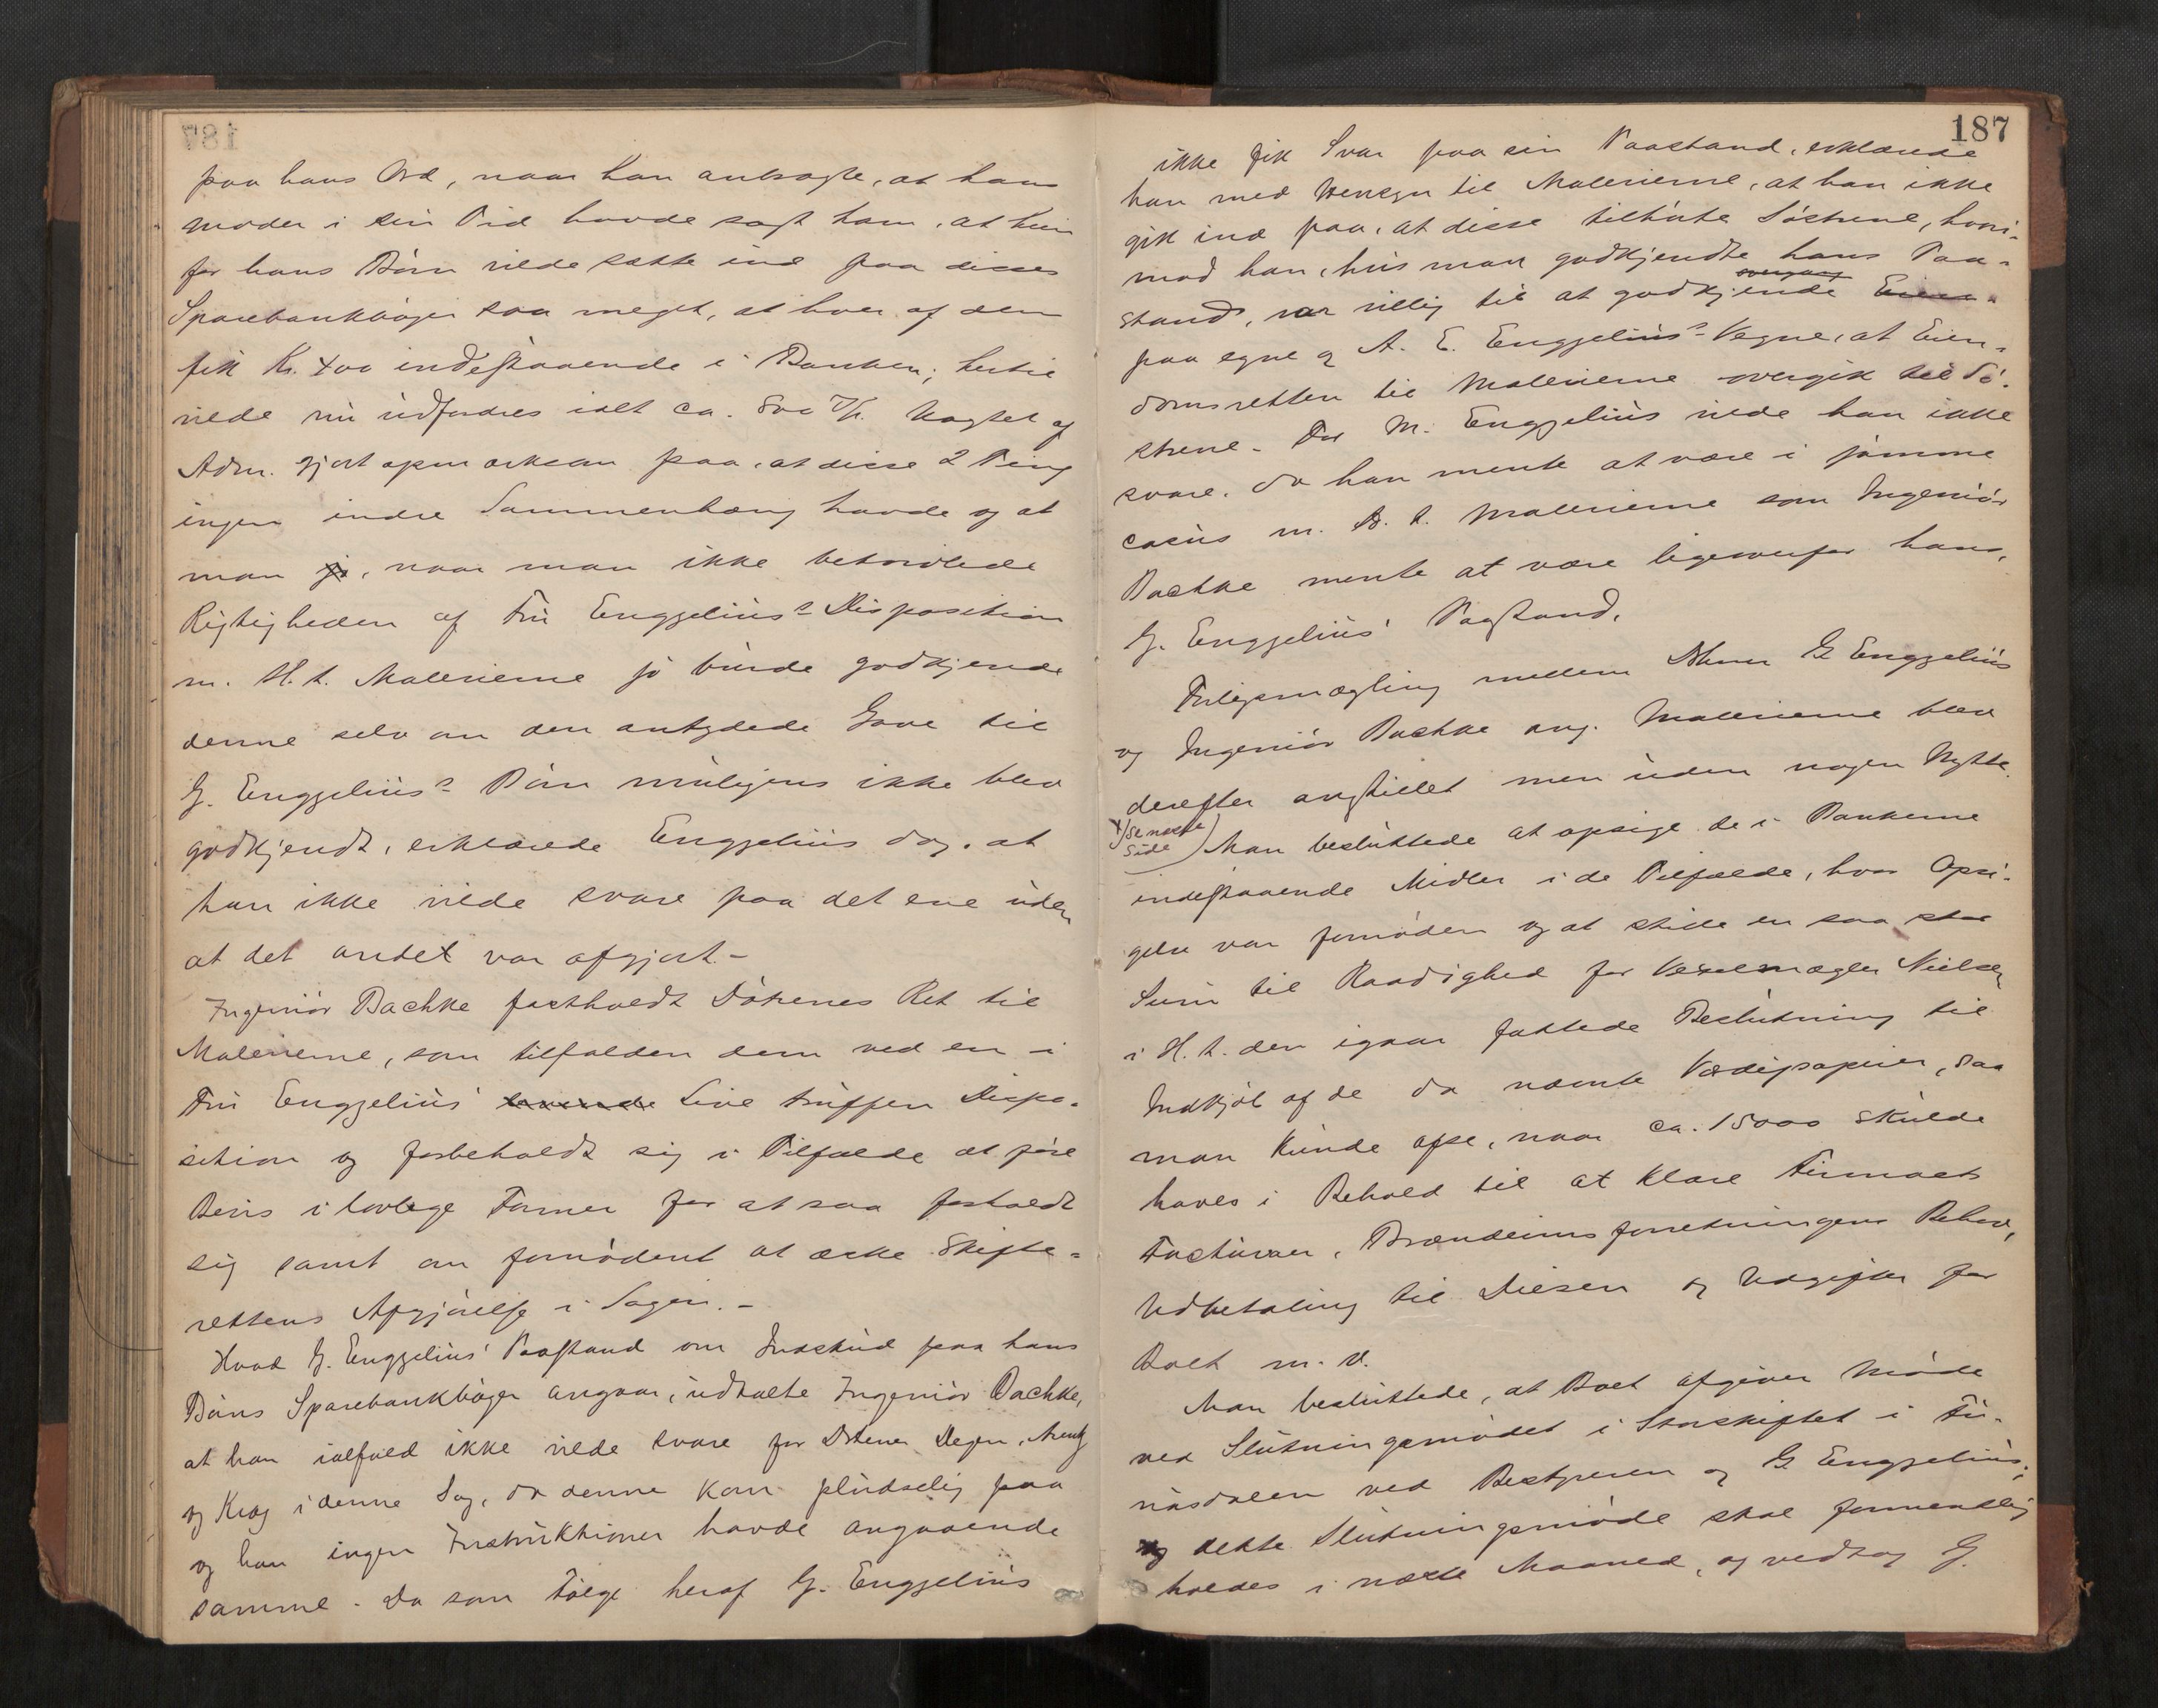 paa hans Ord, naar han antragte, at hans
moder i sin Tid havde sagt ham, at hun
for hans Børn vilde sætte ind paa disses
Sparebankbøger saa meget, at hver af dem
fik Kr. 400 indestaaende i Banken; hertil
vilde nu udfordres ialt ca. 800 Kr. Uagtet af
Adm. gjort opmærksom paa, at disse 2 Ting
ingen indre Sammenhæng havde og at
man jo, naar man ikke betvivlede
Rigtigheden af Fru Enggelius's Disposition
m. H. t. Malerierne jo burde godkjende
denne selv om den antydede Gave til
G. Enggelius's Børn muligens ikke blev
godkjendt, erklærede Enggelius dog, at
han ikke vilde svare paa det ene uden
at det andet var afgjort.-
Ingeniør Bachke fastholdt Døtrenes Ret til
Malerierne, som tilfalden dem ved en i
Fru Enggelius' levende Live truffen Dispo-
sition og forbeholdt sig i Tilfælde at føre
Bevis i lovlige Former for at saa forholdt
sig samt om fornødent at æske Skifte-
rettens Afgjørelse i Sagen.-
Hvad G. Enggelius' Paastand om Indskud paa hans
Børns Sparebankbøger angaar, udtalte Ingeniør Bachke,
at han ialfald ikke vilde svare for D'Herrer Degen, Arentz
og Krog i denne Sag, da denne kom pludselig paa
og han ingen Instruktioner havde angaaende
samme. Da som Følge heraf G. Enggelius
187
ikke fik Svar paa sin Paastand, erklærede
han med Hensyn til Malerierne, at han ikke
gik ind paa, at disse tilhørte Søstrene, hvori-
mod han, hvis man godkjendte hans Paa-
overgang
stand, var villig til at godkjende Eien-
paa egne og A. E. Enggelius's Vegne, at Eien-
domsretten til Malerierne overgik til Sø-
strene. For M. Enggelius vilde han ikke
svare, da han mente at være i samme
casus m. H. t. Malerierne som Ingeniør
Bachke mente at være ligeoverfor hans,
G. Enggelius' Paastand.
Forligsmægling mellem D'Herrer G Enggelius
og Ingeniør Bachke ang. Malerierne blev
derefter anstillet men uden nogen Nytte.
x/ Se næste
Side
Man besluttede at opsige de i Bankerne
indestaaende Midler i de Tilfælde, hvor Opsi-
gelse var fornøden og at stille en saa stor
Sum til Raadighed for Vexelmægler Nielsen
i H. t. den igaar fattede Beslutning til
Indkjøb af de da nævnte Værdipapirer, saa
man kunde afse, naar ca. 15000 skulde
haves i Behold til at klare Firmaets
Facturaer, Brændevinsforretningens Behov,
Udbetaling til Diesen og Udgifter for
Boet m. v.
Man besluttede, at Boet afgiver Møde
ved Slutningsmødet i Storskiftet i Fu-
nåsdalen ved Bestyreren og G Enggelius;
og dette Slutningsmøde skal formentlig
holdes i næste Maaned, og vedtog G.